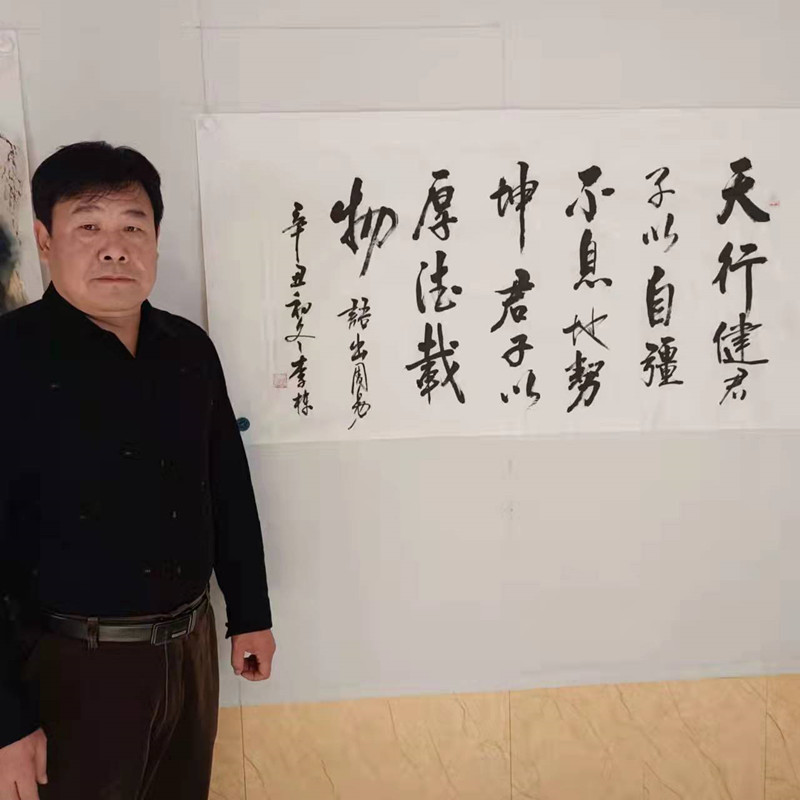 天行健君
子以自彊
不息地势
坤君子以
厚德载
物
語出周易
辛丑初冬李栋